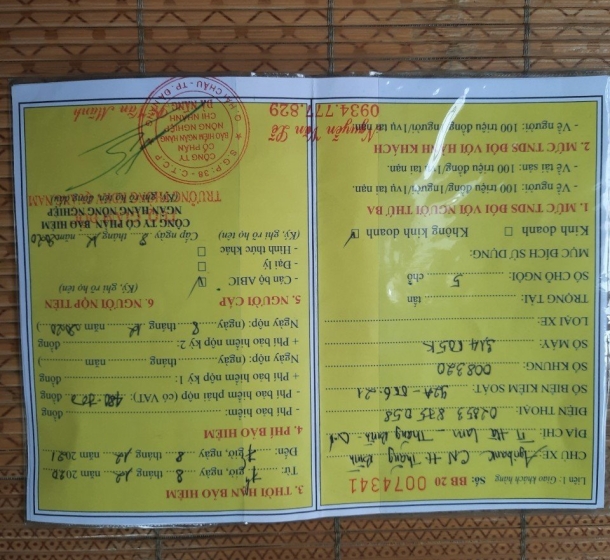 Liên 1: Giao khách hàng Số: BB 20 0074341
CHỦ XE: Agribank CN H. Thăng Bình
ĐỊA CHỈ: TT Hà Lam - Thăng Bình
ĐIỆN THOẠI:
SỐ BIỂN KIỂM SOÁT: 92A-
SỐ KHUNG: 008320
SỐ MÁY:
LOẠI XE:
TRỌNG TẢI: tấn
SỐ CHỖ NGỒI: 5 chỗ
MỤC ĐÍCH SỬ DỤNG:
Kinh doanh ☐ Không kinh doanh ☑
1. MỨC TNDS ĐỐI VỚI NGƯỜI THỨ BA
- Về người: 100 triệu đồng/1người/1vụ tai nạn.
- Về tài sản: 100 triệu đồng/1vụ tai nạn.
2. MỨC TNDS ĐỐI VỚI HÀNH KHÁCH
- Về người: 100 triệu đồng/1người/1vụ tai nạn
0934.777.829
3. THỜI HẠN BẢO HIỂM
Từ: giờ, ngày 8 tháng 12 năm 2020
Đến: giờ, ngày 8 tháng 12 năm 2021
4. PHÍ BẢO HIỂM
- Phí bảo hiểm: đồng
- Phí bảo hiểm phải nộp (có VAT): đồng
+ Phí bảo hiểm nộp kỳ 1: đồng
Ngày nộp: (ngày tháng năm )
+ Phí bảo hiểm nộp kỳ 2: đồng
Ngày nộp: (ngày 8 tháng 12 năm 2020 )
5. NGƯỜI CẤP 6. NGƯỜI NỘP TIỀN
- Cán bộ ABIC ☑ (Ký, ghi rõ họ tên)
- Đại lý ☐
- Hình thức khác ☐
(Ký, ghi rõ họ tên) Cấp ngày 8 tháng 12 năm 2020
CÔNG TY CỔ PHẦN BẢO HIỂM
NGÂN HÀNG NÔNG NGHIỆP
CÔNG TY
CỔ PHẦN
BẢO HIỂM NGÂN HÀNG
NÔNG NGHIỆP
CHI NHÁNH
ĐÀ NẴNG
Nguyễn Văn